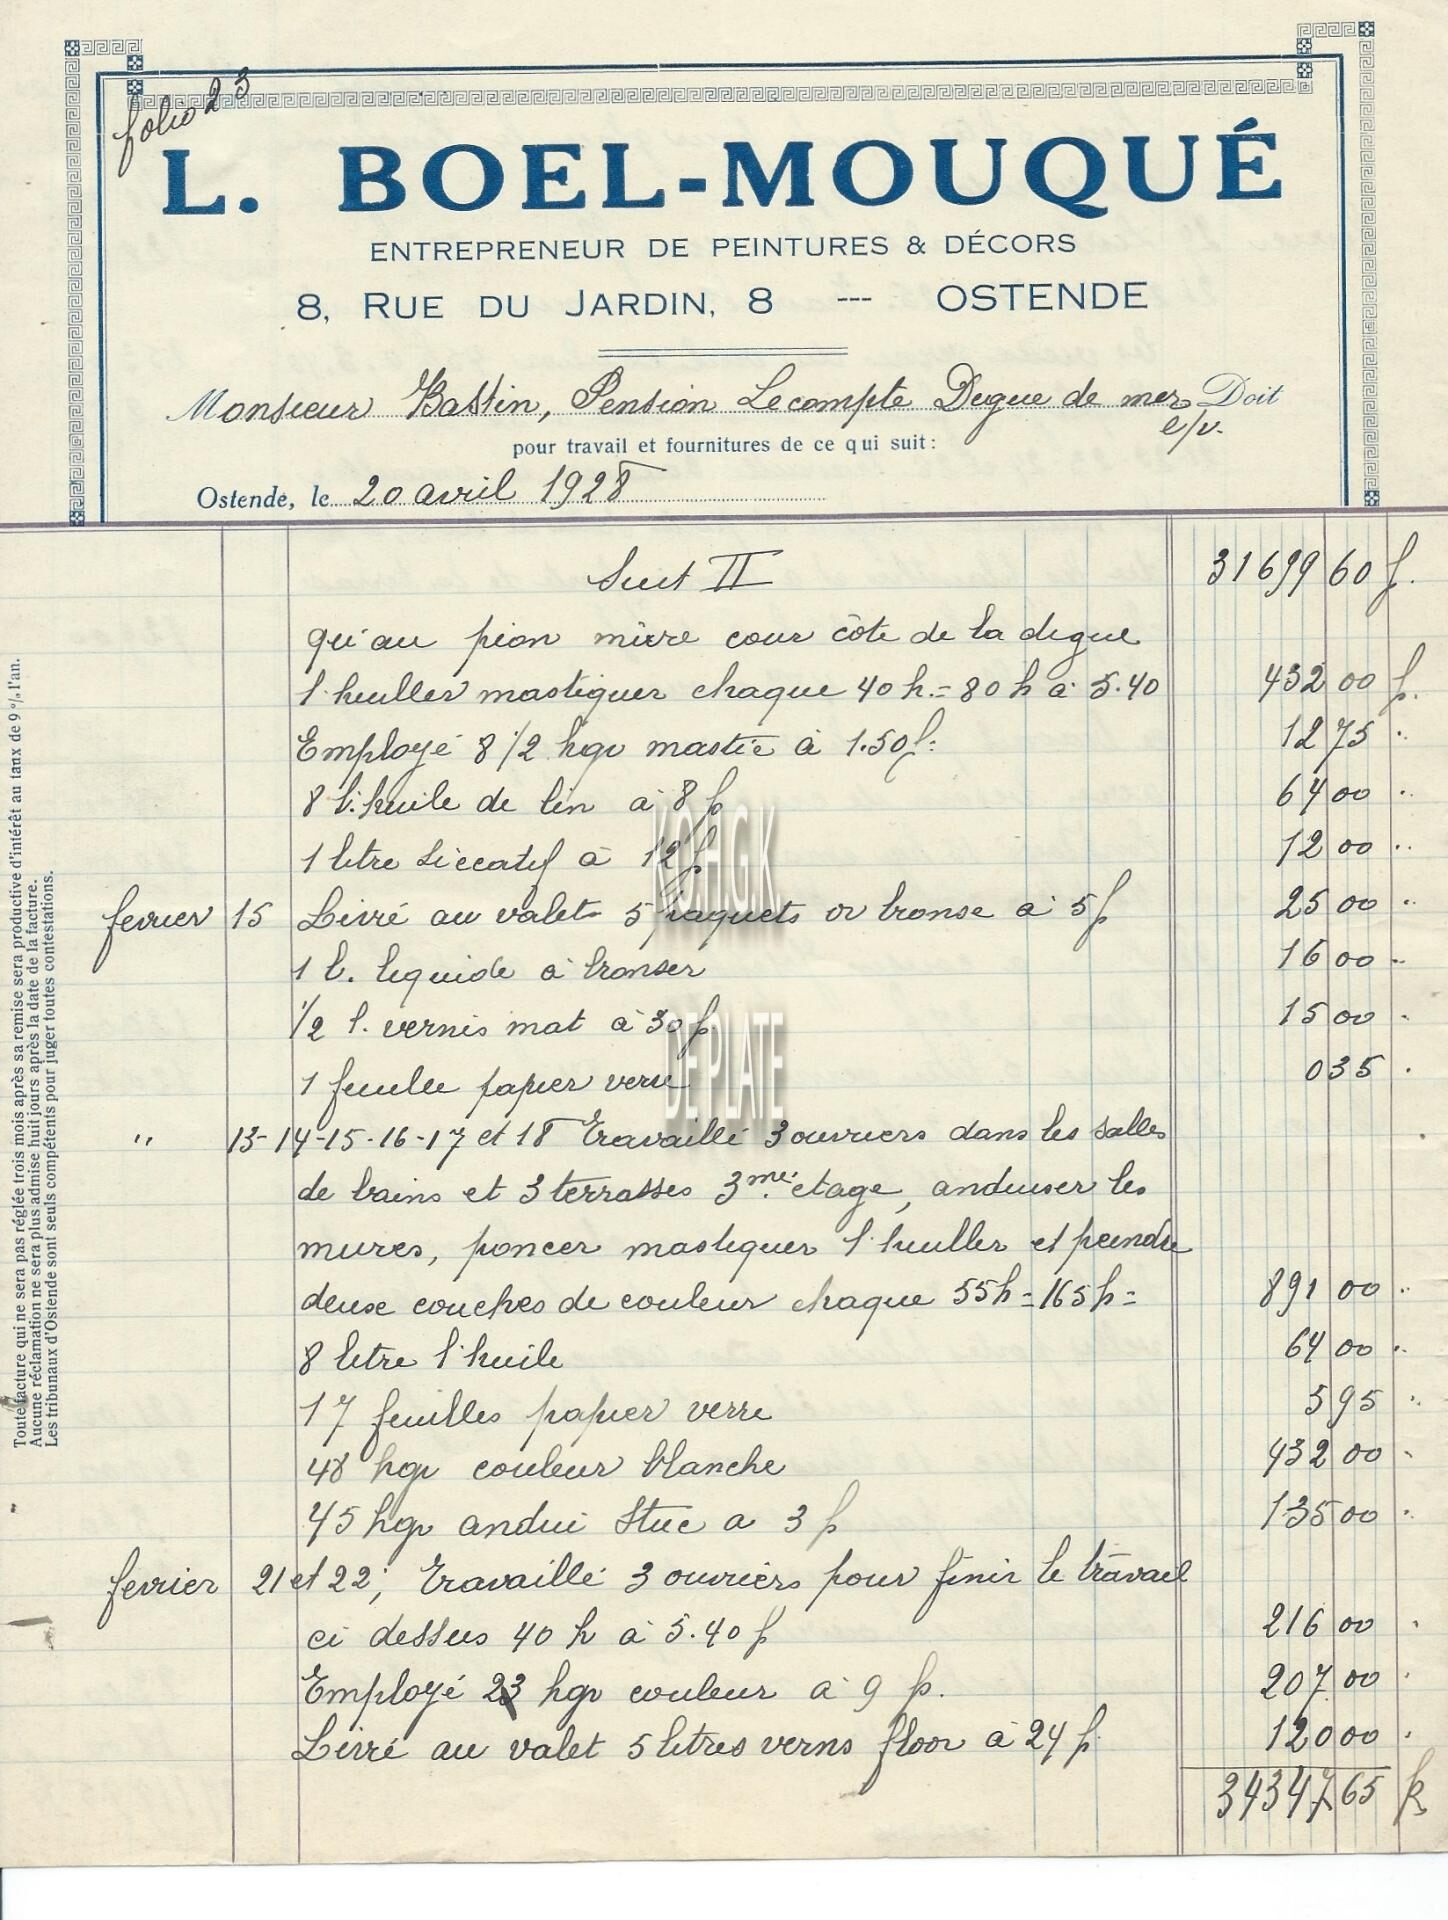 folio 23
L. BOEL-MOUQUÉ
ENTREPRENEUR DE PEINTURES & DÉCORS
8, RUE DU JARDIN, 8 --- OSTENDE
Monsieur Bastin, Pension Lecompte Degue de mer Doit
e/v.
pour travail et fournitures de ce qui suit:
Ostende, le 20 avril 1928
Suit II 31699 60 f.
qu'au pion mûre cour côte de la degue
l'heuller mastiquer chaque 40 h. = 80 h à 5.40 432 00 f.
Employé 8 1/2 kgr mastic à 1.50 f. 12 75 "
8 l. huile de lin à 8 f 64 00 "
1 litre siccatif à 12 f 12 00 "
fevrier 15 Livré au valet 5 paquets or bronse à 5 f 25 00 "
1 l. liquide à bronser 16 00 "
1/2 l. vernis mat à 30 f 15 00 "
1 feuille papier verre 0 35 "
" 13-14-15-16-17 et 18 Travaillé 3 ouvriers dans les salles
de bains et 3 terrasses 3me etage, anduiser les
mures, poncer mastiquer l'huiller et peindre
deuse couches de couleur chaque 55h = 165 h = 891 00 "
8 litre l'huile 64 00 "
17 feuilles papier verre 5 95 "
48 kgr couleur blanche 432 00 "
45 kgr andui Stuc a 3 f 135 00 "
fevrier 21 et 22, travaillé 3 ouvriers pour finir le travail
ci dessus 40 h à 5.40 f 216 00 "
Employé 23 kgr couleur à 9 f. 207 00 "
Livré au valet 5 litres verns floor à 24 f 120 00 "
34347 65 fr
Toute facture qui ne sera pas réglée trois mois après sa remise sera productive d'intérêt au taux de 9 % l'an.
Aucune réclamation ne sera plus admise huit jours après la date de la facture.
Les tribunaux d'Ostende sont seuls compétents pour juger toutes contestations.
K.O.H.G.K
DE PLATE